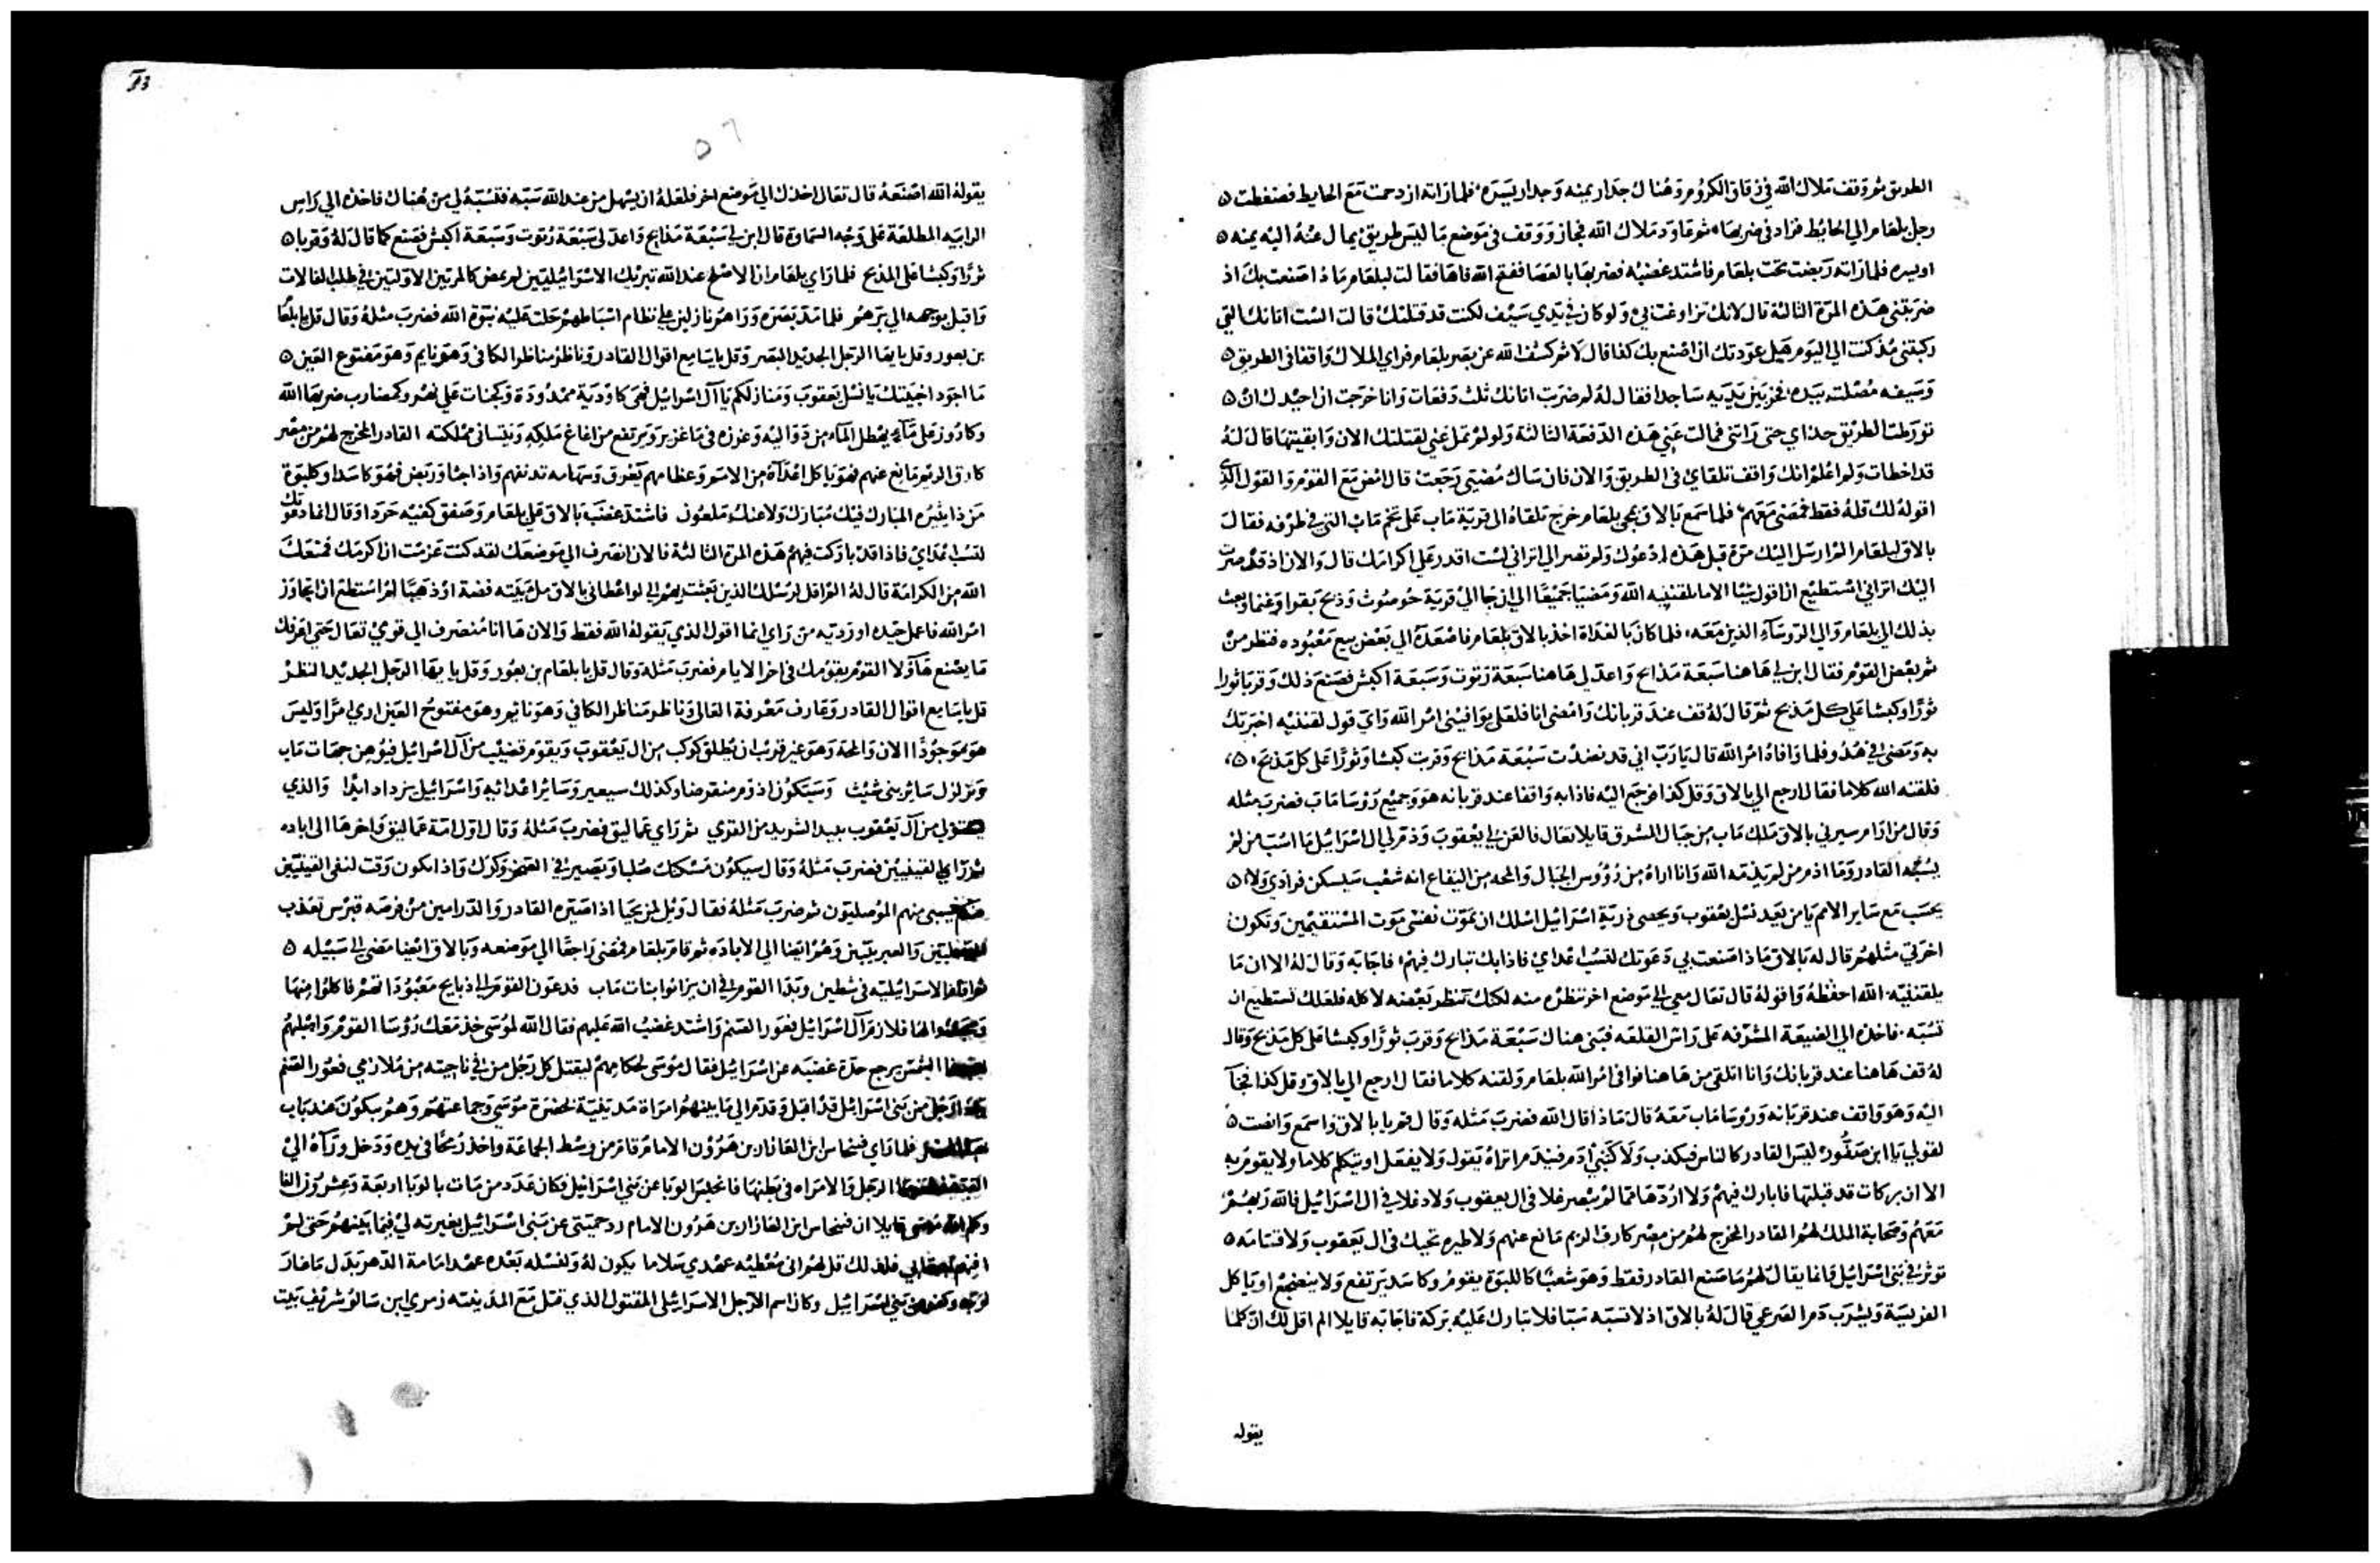 الطريق ثم وقف ملاك الله في زقاق الكروم وهناك جدار يمنه وجدار يسره فلما راته ازدحمت مع الحايط فضغطت
رجل بلعام الي الحايط فزاد في ضربها ثم عاود ملاك الله فجاز ووقف في موضع ما ليس طريق يمال عنه اليه يمنه
او يسره فلما راته ربضت تحت بلعام فاشتد غضبه فضربها بالعصا ففتح الله فاها فقالت لبلعام ماذا صنعت بك اذ
ضربتني هذه المرة الثالثة قال لانك تراوغت بي ولو كان في يدي سيف لكنت قد قتلتك قالت الست اتانك التي
ركبتني مذ كنت الي اليوم هل عودتك ان اصنع بك كذا قال لا ثم كشف الله عن بصر بلعام فراي الملاك واقفا في الطريق
وسيفه مصلته بيده فخر بين يديه ساجدا فقال له لم ضربت اتانك ثلث دفعات وانا خرجت ان احيدك ان
تورطت الطريق حذاي حتى راتني فمالت عني هذه الدفعة الثالثة ولو لم تمل عني لقتلتك الان وابقيتها قال له
قد اخطات ولم اعلم انك واقف تلقاي في الطريق والان فان ساك مضيي رجعت قال امض مع القوم والقول الذي
اقوله لك قله فقط فمضى معهم فلما سمع بالاق بمجي بلعام خرج تلقاه الى قرية ماب على تخم ماب التي في طرفه فقال
بالاق لبلعام الم ارسل اليك مرة قبل هذه ادعوك ولم تصر الي اتراني لست اقدر علي اكرامك قال والان اذ قد صرت
اليك اتراني استطيع ان اقول شيا الا ما يلقنيه الله ومضيا جميعا الي ان جا الي قرية حوصوث وذبح بقرا وغنما وبعث
بذلك الي بلعام والي الروساء الذين معه فلما كان بالغداة اخذ بالاق بلعام فاصعده الي بعض بيع معبوده فنظر من
ثم بعض القوم فقال ابن لي هاهنا سبعة مذابح واعد لي هاهنا سبعة رتوت وسبعة اكبش فصنع ذلك وقربا ثورا
ثورا وكبشا علي كل مذبح ثم قال له قف عند قربانك وامضي انا فلعل يوافيني امر الله واي قول لقننيه اخبرتك
به ومضى في هدو فلما وافاه امر الله قال يا رب اني قد نضدت سبعة مذابح وقربت كبشا وثورا علي كل مذبح
فلقنه الله كلاما فقال ارجع الي بالاق وقل كذا فرجع اليه فاذا به واقفا عند قربانه هو وجميع روسا ماب فضرب مثله
وقال من ارام سيرني بالاق ملك ماب من جبال الشرق قايلا تعال فالعن لي يعقوب وذم لي ال اسرائيل ما اسب من لم
يسبه القادر وما اذم من لم يذمه الله وانا اراه من رؤوس الجبال والمحه من اليفاع انه شعب سيسكن فرادي ولا
يحسب مع ساير الامم يا من يعد نسل يعقوب ويحصى ذرية اسرائيل اسلك ان تموت نفسي موت المستقيمين وتكون
اخرتي مثلهم قال له بالاق ماذا صنعت بي دعوتك لتسب اعداي فاذا بك تبارك فيهم فاجابه وقال له الا ان ما
يلقننيه الله احفظه واقوله قال تعال معي الي موضع اخر تنظره منه لكنك تنظر بعضه لا كله فلعلك تستطيع ان
تسبه فاخذه الي الضيعة المشرفه على راس القلعه فبنى هناك سبعة مذابح وقرب ثورا وكبشا على كل مذبح وقال
له قف هاهنا عند قربانك وانا اتلقى من هاهنا فوافى امر الله بلعام ولقنه كلاما فقال ارجع الي بالاق وقل كذا فجآ
اليه وهو واقف عند قربانه وروسا ماب معه قال ماذا قال الله فضرب مثله وقال قم يا بالاق واسمع وانصت
لقولي يا ابن صفور ليس القادر كالناس فيكذب ولا كبني ادم فيندم اتراه يقول ولا يفعل او يتكلم كلاما ولا يقوم به
الا ان بركات قد قبلتها فابارك فيهم ولا اردها مما لم يبصر غلا في ال يعقوب ولا دغلا في ال اسرائيل فالله ربهم
معهم وصحابة الملك لهم القادر المخرج لهم من مصر كارق الريم مانع عنهم ولا طيره تحيك في ال يعقوب ولا قتامه
توثر في بني اسرائيل فانما يقال لهم ما صنع القادر فقط وهو شعبا كاللبوة يقوم وكاسد يرتفع ولا ينضجع او ياكل
الفريسة ويشرب دم الصرعي قال له بالاق اذ لا تسبه سبا فلا تبارك عليه بركة فاجابه قايلا الم اقل لك ان كلما
يقوله
يقوله الله اصنعه قال تعال اخذك الي موضع اخر فلعله ان يسهل من عند الله سبه فتسبه لي من هناك فاخذه الي راس
الرابيه المطلعة على وجه السماوة قال ابن لي سبعة مذابح واعد لي سبعة رتوت وسبعة اكبش فصنع كما قال له وقربا
ثورا وكبشا على المذبح فلما راي بلعام ان الاصلح عند الله تبريك الاسرائيليين لم يمض كالمرتين الاولتين في طلب الفالات
واقبل بوجهه الي برهم فلما مد بصره وراهم نازلين على نظام اسباطهم حلت عليه نبوة الله فضرب مثله وقال قل يا بلعام
بن بعور وقل يايها الرجل الحديد البصر وقل يا سامع اقوال القادر وناظر مناظر الكافي وهو نايم وهو مفتوح العين
ما اجود اخبيتك يا نسل يعقوب ومنازلكم يا آل اسرائيل فهي كاودية ممدودة وكجنات علي نهر وكمضارب ضربها الله
وكارز على ماء يهطل الماء من دواليه وغرزه في ما غزير ويرتفع من اغاغ ملكه وينتسا في مملكته القادر المخرج لهم من مصر
كارق الريم مانع عنهم فهو ياكل اعداه من الامم وعظامهم يعرق وسهامه تدنفهم واذا جثا وربض فهو كاسد او كلبوة
من ذا يثيره المبارك فيك مبارك ولاعنك ملعون فاشتد غضب بالاق على بلعام وصفق كفيه حردا وقال انما دعوتك
لتسب اعداي فاذا قد باركت فيهم هذه المرة الثالثة فالان انصرف الي موضعك لقد كنت عزمت ان اكرمك فمنعك
الله من الكرامة قال له الم اقل لرسلك الذين بعثت بهم الي لو اعطاني بالاق مل بيته فضة او ذهبا لم استطع ان اتجاوز
امر الله فاعمل جيده او رديه من راي انما اقول الذي يقوله الله فقط والان ها انا منصرف الي قومي تعال حتى اعرفك
ما يصنع هآولا القوم بقومك في اخر الايام فضرب مثله وقال قل يا بلعام بن بعور وقل يايها الرجل الحديد النظر
قل يا سامع اقوال القادر وعارف معرفة العالي وناظر مناظر الكافي وهو نايم وهو مفتوح العين اري امرا وليس
هو موجودا الان والمحه وهو غير قريب ان يطلق كوكب من ال يعقوب ويقوم قضيب من آل اسرائيل فيوهن جهات ماب
ويزلزل ساير بني شيث وسيكون ادوم منقرضا وكذلك سيعير وساير اعدائه واسرائيل يزداد ايدا والذي
يتولي من آل يعقوب يبيد الشريد من القري ثم راي عماليق فضرب مثله وقال اول امة عماليق واخرها الى اباده
ثم راي القينيين فضرب مثله وقال سيكون مسكنك صلبا ويصير في الصخر وكرك واذا يكون وقت لنفي القينيين
يسبي منهم الموصليون ثم ضرب مثله فقال ويل لمن يحيا اذا صيره القادر والدرامين من فرضه قبرس تعذب
والعبريين وهم ايضا الي الاباده ثم قام بلعام فمضى راجعا الي موضعه وبالاق ايضا مضى الي سبيله
الاسرائيليه في شطين وبدا القوم في ان يزانوا بنات ماب فدعون القوم الي ذبايح معبوداتهم فاكلوا منها
لها فلازم آل اسرائيل فعور الصنم واشتد غضب الله عليهم فقال الله لموسي خذ معك روسا القوم واصلبهم
الشمس يرجع حدة غضبه عن اسرائيل فقال موسى لحكامهم ليقتل كل رجل من في ناحيته من ملازمي فعور الصنم
رجل من بني اسرائيل قد اقبل وقدم الي ما بينهم امراة مدينية بحضرة موسي وجماعتهم وهم يبكون عند باب
فلما راي فينحاس ابن العازار بن هرون الامام قام من وسط الجماعة واخذ رمحا في يده ودخل ورآه الي
الرجل والامراه في بطنها فانحبس الوبا عن بني اسرائيل فكان عدد من مات بالوبا اربعة وعشرون الفا
قايلا ان فينحاس ابن العازار بن هرون الامام رد حميتي عن بني اسرائيل بغيرته لي فيما بينهم حتى لم
فلذلك قل لهم اني معطيه عهدي سلاما يكون له ولنسله بعده عهد امامة الدهر بدل ما غار
لربه وكفر عن بني اسرائيل وكان اسم الرجل الاسرائيلي المقتول الذي قتل مع المدينيه زمري ابن سالو شريف بيت